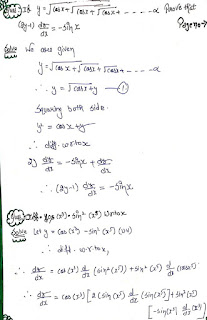 Ques: If y = √cos x + √cos x + √cos x + - - - - ∝ Prove that
(2y-1) dy/dx = -sin x
Page no →
Solve We are given
y = √cos x + √cos x + √cos x + - - - - ∝
∴ y = √cos x + y — ①
Squaring both side
y² = cos x + y
∴ diff. w.r.to x
2y dy/dx = -sin x + dy/dx
∴ (2y-1) dy/dx = -sin x
Ques: Diff. cos(x³)·sin²(x⁵) w.r.to x
Solve Let y = cos(x³) · sin²(x⁵) (u.v)
∴ diff. w.r.to x,
∴ dy/dx = cos(x³) d/dx (sin²(x⁵)) + sin²(x⁵) d/dx (cos x³)
∴ dy/dx = cos(x³) [2 (sin x⁵) d/dx (sin(x⁵)] + sin²(x⁵)
[-sin(x³) d/dx (x³)]